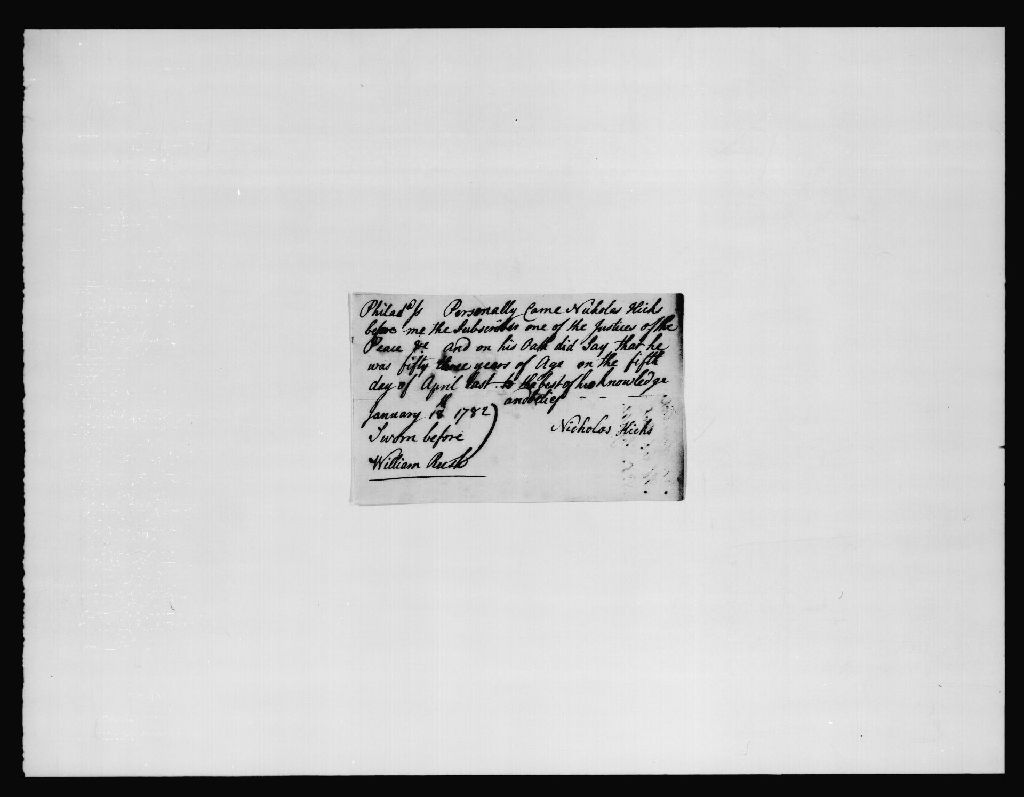 Philad.a ss Personally Came Nicholas Hicks
before me the Subscriber one of the Justices of the
Peace &c and on his Oath did Say that he
was fifty three years of Age on the fifth
day of April last to the best of his knowledge
and belief
January 18th 1782
Sworn before
Nicholas Hicks
William Rush